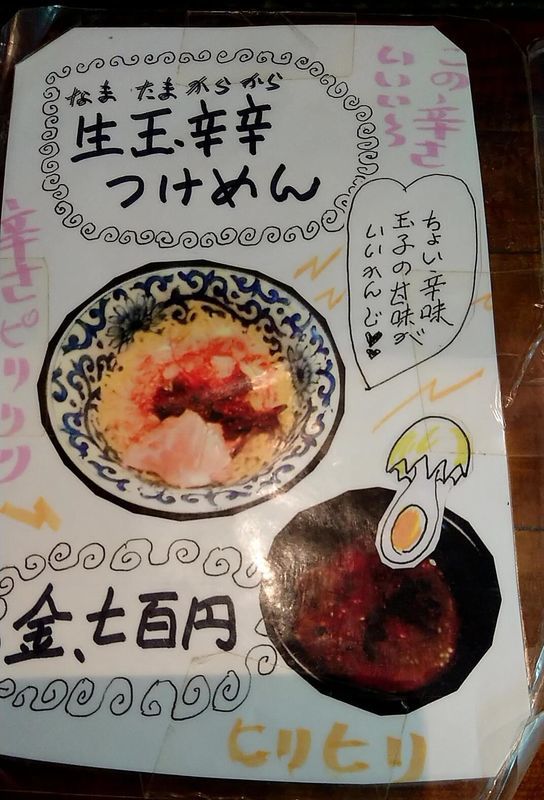 なま たま からから
生玉、辛辛
つけめん
この辛さ
いいいろ
ちょい辛味
玉子の甘味が
いいかんじ♥♥
辛さピリリリ
金、七百円
ヒリヒリ